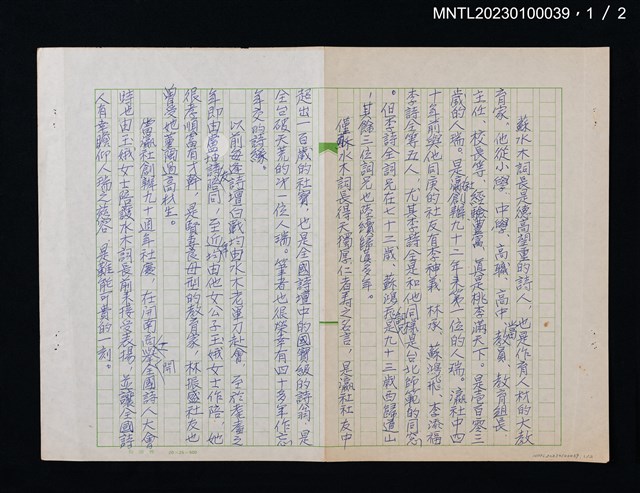 MNTL20230100039,1/2
蘇水木詞長是德高望重的詩人,也是作育人材的大教
育家。他從小學、中學、高職、高中當教員、教育組長、
主任、校長等,經驗豐富,真是桃李滿天下。是壹百零三
歲的人瑞。是瀛社創辦九十二年來第一位的人瑞。瀛社中四
十年前與他同庚的社友有李神義、林承、蘇鴻飛、李添福
李詩全等五人。尤其李詩全是和他同樣是台北師範的同窓
。但李詩全詞兄在七十二歲、蘇鴻飛詞兄是九十三歲西歸道山
,其餘三位詞兄也陸續歸道多年。
僅蘇水木詞長得天獨厚仁者壽之名言,是瀛社社友中
超出一百歲的社寶,也是全國詩壇中的國寶級的詩翁,是
全台破天荒的第一位人瑞。筆者也很榮幸有四十多年作忘
年交的詩緣。
以前每逢詩壇白戰均由水木老單刀赴會,至於耄耋之
年即由當坤詩友陪同,至近年均由他女公子玉娥女士作陪,她
很孝順富有才幹,是賢妻良母型的教育家,林振盛社友也
曾受她薰陶過高材生。
當瀛社創辦九十週年社慶,在開南商工舉開全國詩人大會
時也由玉娥女士陪護水木詞長前來接受表揚,並讓全國詩
人有幸瞻仰人瑞之慈容,是難能可貴的一刻。